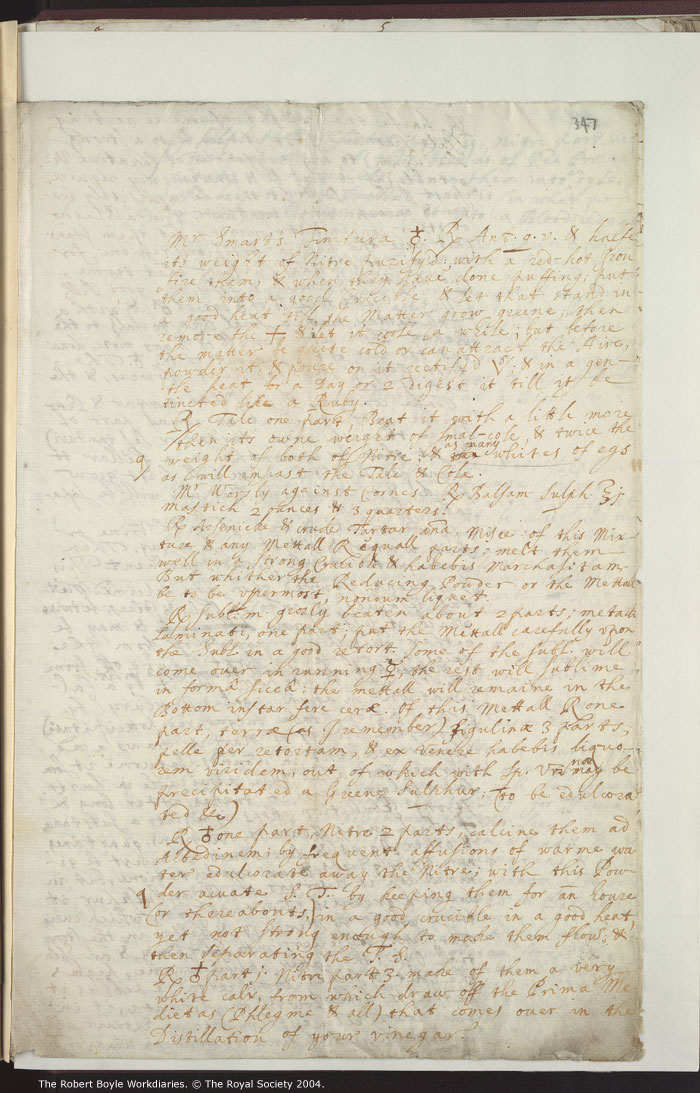 347
Mr Smart's Tinctura ♁ ℞ Ant. q. v. & halfe
its weight of Nitre purify'd; with a red-hot Iron
fire them, & when they have done puffing; put
them into a good Crucible, & let that stand in
a good heat till the Matter grow greene; then
remove the ✝, & let it coole a while; but before
the matter be quite cold or can attract the Aire,
powder it, & poure on it rectify'd & in a gen-
tle heat for a Day or 2 digest it till it be
tincted like a Ruby.
℞ Talc one part, Beat it with a little more
then its owne weight of smal-cole, & twice the
q weight of both of Nitre & as many whites of egs
as will impast the Talc & Cole.
Mr Worsly against Cornes ℞ Balsam Sulph ℥j
Mastich 2 ounces & 3 quarters.
℞ Arsenicke & crude Tartar ana, Misce: of this Mix-
ture & any Mettall ℞ equall parts; melt them
well in a strong Crucible & habebis Marchasitam.
But whither the Reducing Powder or the Mettall
be to be vpermost nondum liquet.
℞ Subl:m grosly beaten about 2 parts; metalli
laminati, one part; put the Mettall carefully vpon
the Subl: in a good retort. some of the Subl: will
come over in running ☿, the rest will sublime
in forma sicca: the mettall will remaine in the
Bottom instar fere ceræ. of this Mettall ℞ one
part, terræ (as I remember) figulinæ 3 parts,
pelle per retortam, & ex Venere habebis liquo-
rem viridem, out of which with Sp. may be
precipitated a Greene Sulphur; (to be edulcora
ted &c)
℞ ♁ one part, Nitre 2 parts, calcine them ad
Albedinem; by frequent affusions of warme wa
ter edulcorate away the Nitre; with this Pow-
q der acuate S. T. by keeping them for an houre
(or thereabouts,) in a good crucible in a good heat,
yet not strong enough to make them flow; &
then separating the T. S.
℞ ♁ part j. Nitre part 3. made of them a very
white calx, from which draw off the Prima Me
dietas (Phlegme & all) that comes over in the
Distillation of your vinegar.
The Robert Boyle Workdiaries. © The Royal Society 2004.